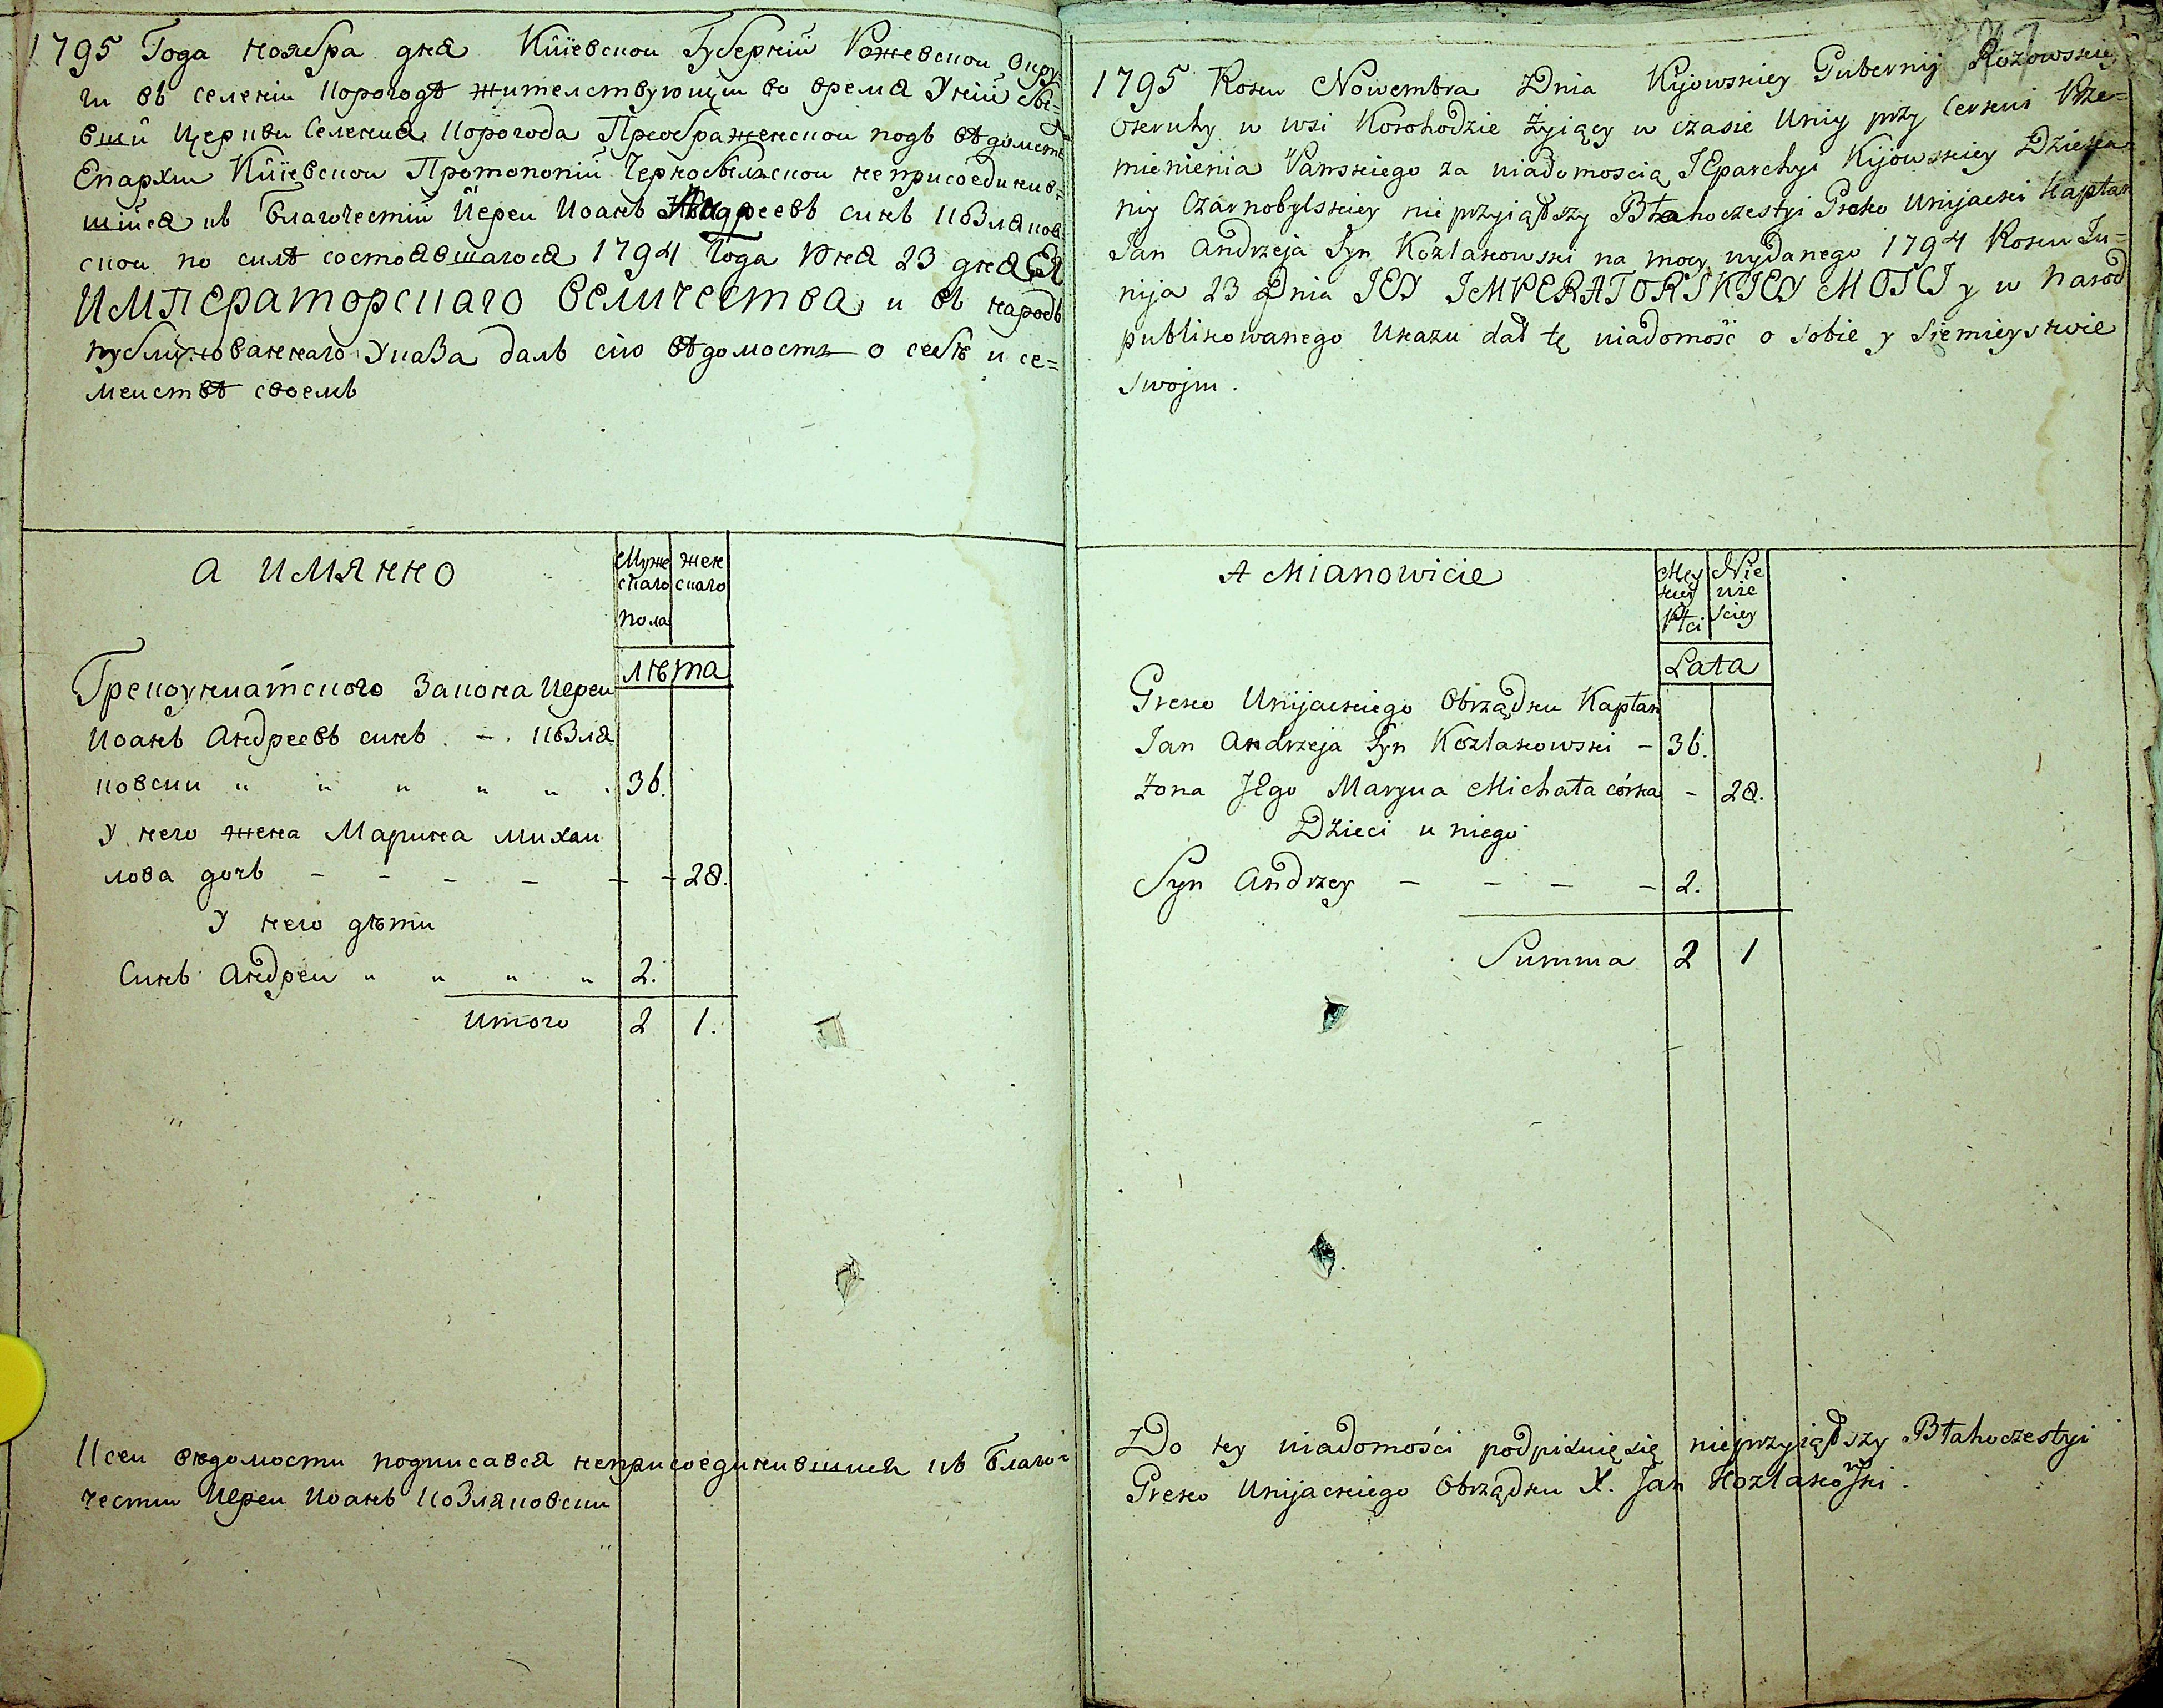 1795 Года ноября дня Кіïевской Губерніи Рожевской Окру-
ги въ селеніи Корогодѣ жителствующіи во время Уніи бы-
вшіи Церкви Селения Корогода Преображенской подъ вѣдомств
Епархіи Кіïевской Протопопіи Чернобылской неприсоединив=
шійся къ благочестію Иереи Иоанъ Андреевъ синъ Козляков
ской по силѣ состоявшагося 1794 Года Юня 23 дня ЕЯ
ИМПЕРАТОРСКАГО ВЕЛИЧЕСТВА и въ народъ
публикованнаго Указа далъ сию вѣдомость о себѣ и се=
меиствѣ своемъ
А ИМЯННО
Муже
скаго
пола
Жен
скаго
лѣта
Грекоуниатского Закона Иереи
Иоанъ Андреевъ синъ . - . Козля
ковски " " " " " . 36.
У него жена Марина Михаи
лова дочъ - - - - - - 28.
У него дѣти
Синъ Андреи " " " " 2.
Итого 2 1.
К сеи вѣдомости подписався неприсоединившися къ благо=
честии Иереи Иоанъ Козляковски
1795 Roku Nowembra Dnia Kijowskiey Gubernij Rozowskiey
Okruhy w wsi Korohodzie żyiący w czasie Uniy przy Cerkwi Prze=
mienienia Pańskiego za wiadomoscią JEparchyi Kijowskiey Dzieka
niy Czarnobylskiey nieprzyiąwszy Błahoczestyi Greko Unijacki Kapłan
Jan Andrzeja Syn Kozlakowski na mocy wydanego 1794 Roku Ju=
nija 23 Dnia JEY IMPERATORSKIEY MOSCI y w Narod
publikowanego Ukazu dał tę wiadomość o sobie y siemieystwie
swojm.
A Mianowicie
Męs
kiey
Płci
Nie
wie
sciey
Lata
Greko Unijackiego Obrządku Kapłan
Jan Andrzeja Syn Kozlakowski - 36.
Żona JEgo Maryna Michała córka - 28.
Dzieci u niego
Syn Andrzey - - - - 2.
Summa 2 1
Do tey wiadomości podpisuię się nieprzyiąwszy Błahoczestyi
Greko Unijackiego Obrządku X. Jan Kozlakowski.